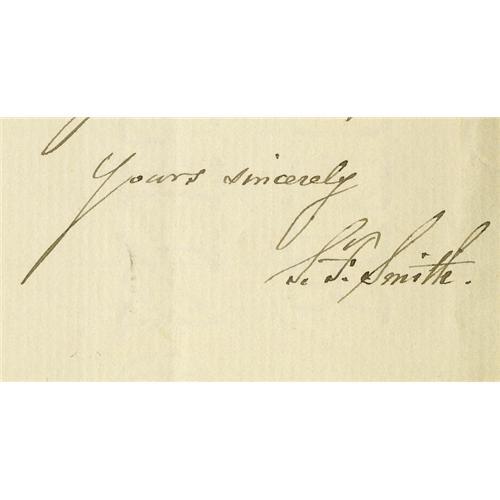 Yours sincerely
S. F. Smith.